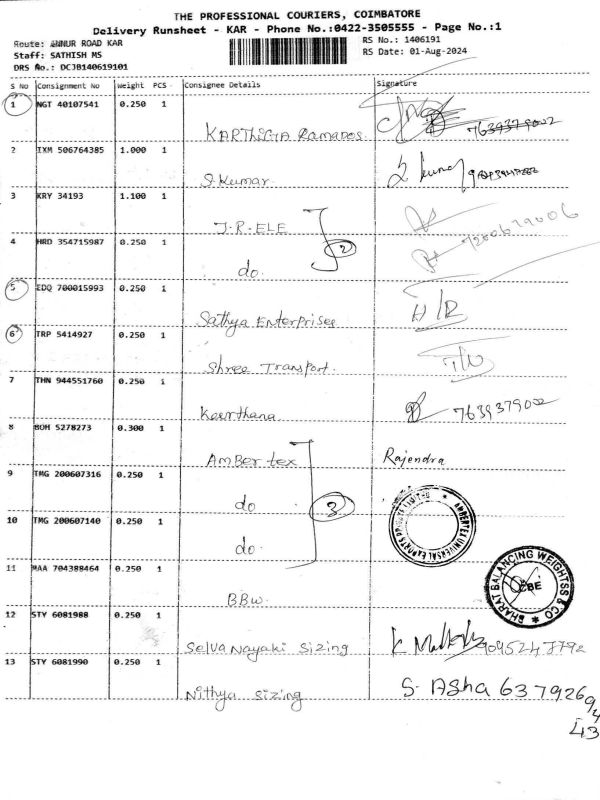 THE PROFESSIONAL COURIERS, COIMBATORE
Delivery Runsheet - KAR - Phone No.:0422-3505555 - Page No.:1
Route: ANNUR ROAD KAR
RS No.: 1406191
Staff: SATHISH MS
RS Date: 01-Aug-2024
DRS No.: DCJB140619101
S No Consignment No Weight PCS Consignee Details Signature
1 NGT 40107541 0.250 1
KARTHIGA Ramados. 7639379002
2 IXM 506764385 1.000 1
S. Kumar
3 KRY 34193 1.100 1
J.R-ELE
2
7200679006
4 HRD 354715987 0.250 1
do.
5 EDQ 700015993 0.250 1
Sathya Enterprises D/R
6 TRP 5414927 0.250 1
Shree Transport.
7 THN 944551760 0.250 1
Keerthana 7639379002
8 BOM 5278273 0.300 1
AmBer tex Rajendra
9 TMG 200607316 0.250 1
do
3
10 TMG 200607140 0.250 1
do.
AMBERTEX UNIVERSAL EXPORTS PRIVATE LIMITED
11 MAA 704388464 0.250 1
BBW.
BHARAT BALANCING WEIGHTSS & CO
CBE
12 STY 6081988 0.250 1
Selva Nayaki Sizing 9095247792
13 STY 6081990 0.250 1
Nithya Sizing S. Asha 637926
94
43